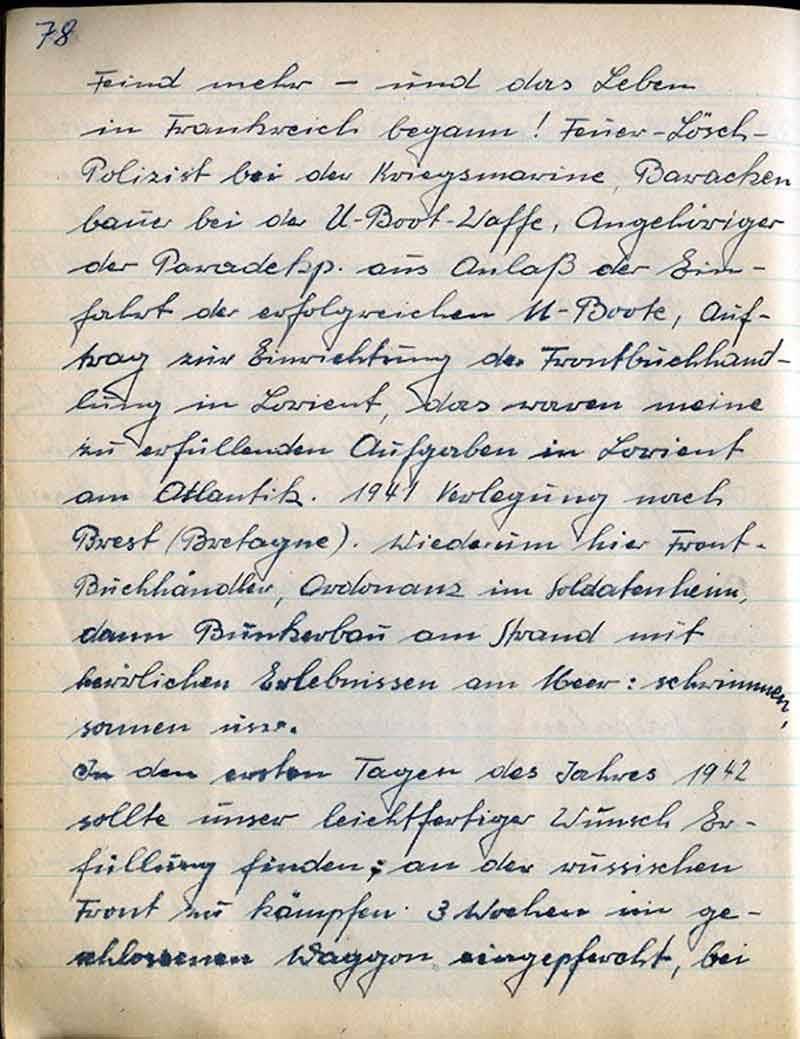 78
Feind mehr – und das Leben
in Frankreich begann! Feuer-Lösch-
Polizist bei der Kriegsmarine, Baracken
bauer bei der U-Boot-Waffe, Angehöriger
der Paradekp. aus Anlaß der Ein-
fahrt der erfolgreichen U-Boote, Auf-
trag zur Einrichtung der Frontbuchhand-
lung in Lorient, das waren meine
zu erfüllenden Aufgaben in Lorient
am Atlantik. 1941 Verlegung nach
Brest (Bretagne). Wiederum hier Front-
Buchhändler, Ordonanz im Soldatenheim,
dann Bunkerbau am Strand mit
herrlichen Erlebnissen am Meer: schwimmen,
sonnen usw.
In den ersten Tagen des Jahres 1942
sollte unser leichtfertiger Wunsch Er-
füllung finden; an der russischen
Front zu kämpfen. 3 Wochen im ge-
schlossenen Waggon eingepfercht, bei